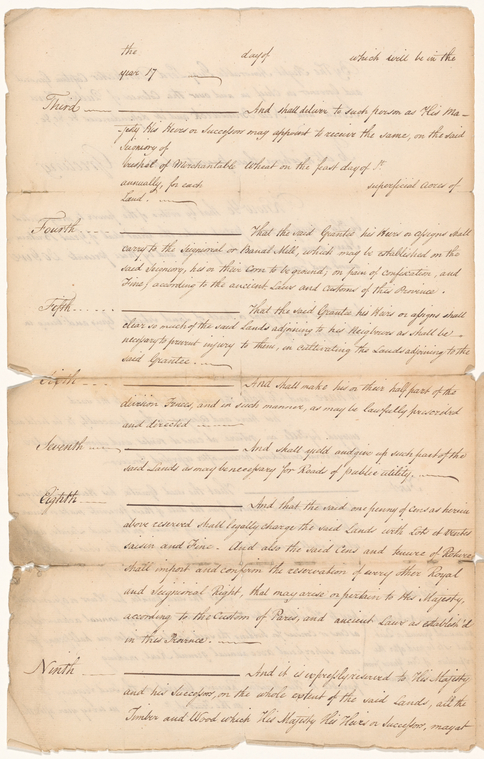 the day of which will be in the
year 17
Third And shall deliver to such person as His Ma-
jesty His Heirs or Successors may appoint to receive the same, on the said
Seigneory of
bushel of Merchantable Wheat on the feast day of St.
annually, for each superficial acres of
Land.
Fourth That the said Grantee his Heirs or assigns shall
carry to the Seignorial or Banal Mill, which may be established on the
said Seigneory, his or their Corn to be ground, on pain of confiscation, and
Fine, according to the ancient Laws and Customs of this Province.
Fifth That the said Grantee his Heirs or assigns shall
clear so much of the said Lands adjoining to his Neighbours as shall be
necessary to prevent injury to them, in cultivating the Lands adjoining to the
said Grantee.
Sixth And shall make his or their half part of the
division Fences, and in such manner, as may be lawfully prescribed
and directed
Seventh And shall yield and give up such part of the
said Lands as may be necessary for Roads of public utility.
Eighth And that the said one penny of Cens as herein
above reserved shall legally charge the said Lands with Lots et Ventes
saisin and Fine. And also the said Cens and
shall import and confirm the reservation of every other Royal
and Seignorial Right, that may arise or pertain to His Majesty,
according to the Custom of Paris, and ancient Laws as establish'd
in this Province.
Ninth And it is expressly reserved to His Majesty
and his Successors, on the whole extent of the said Lands, all the
Timber and Wood which His Majesty His Heirs or Successors, may at